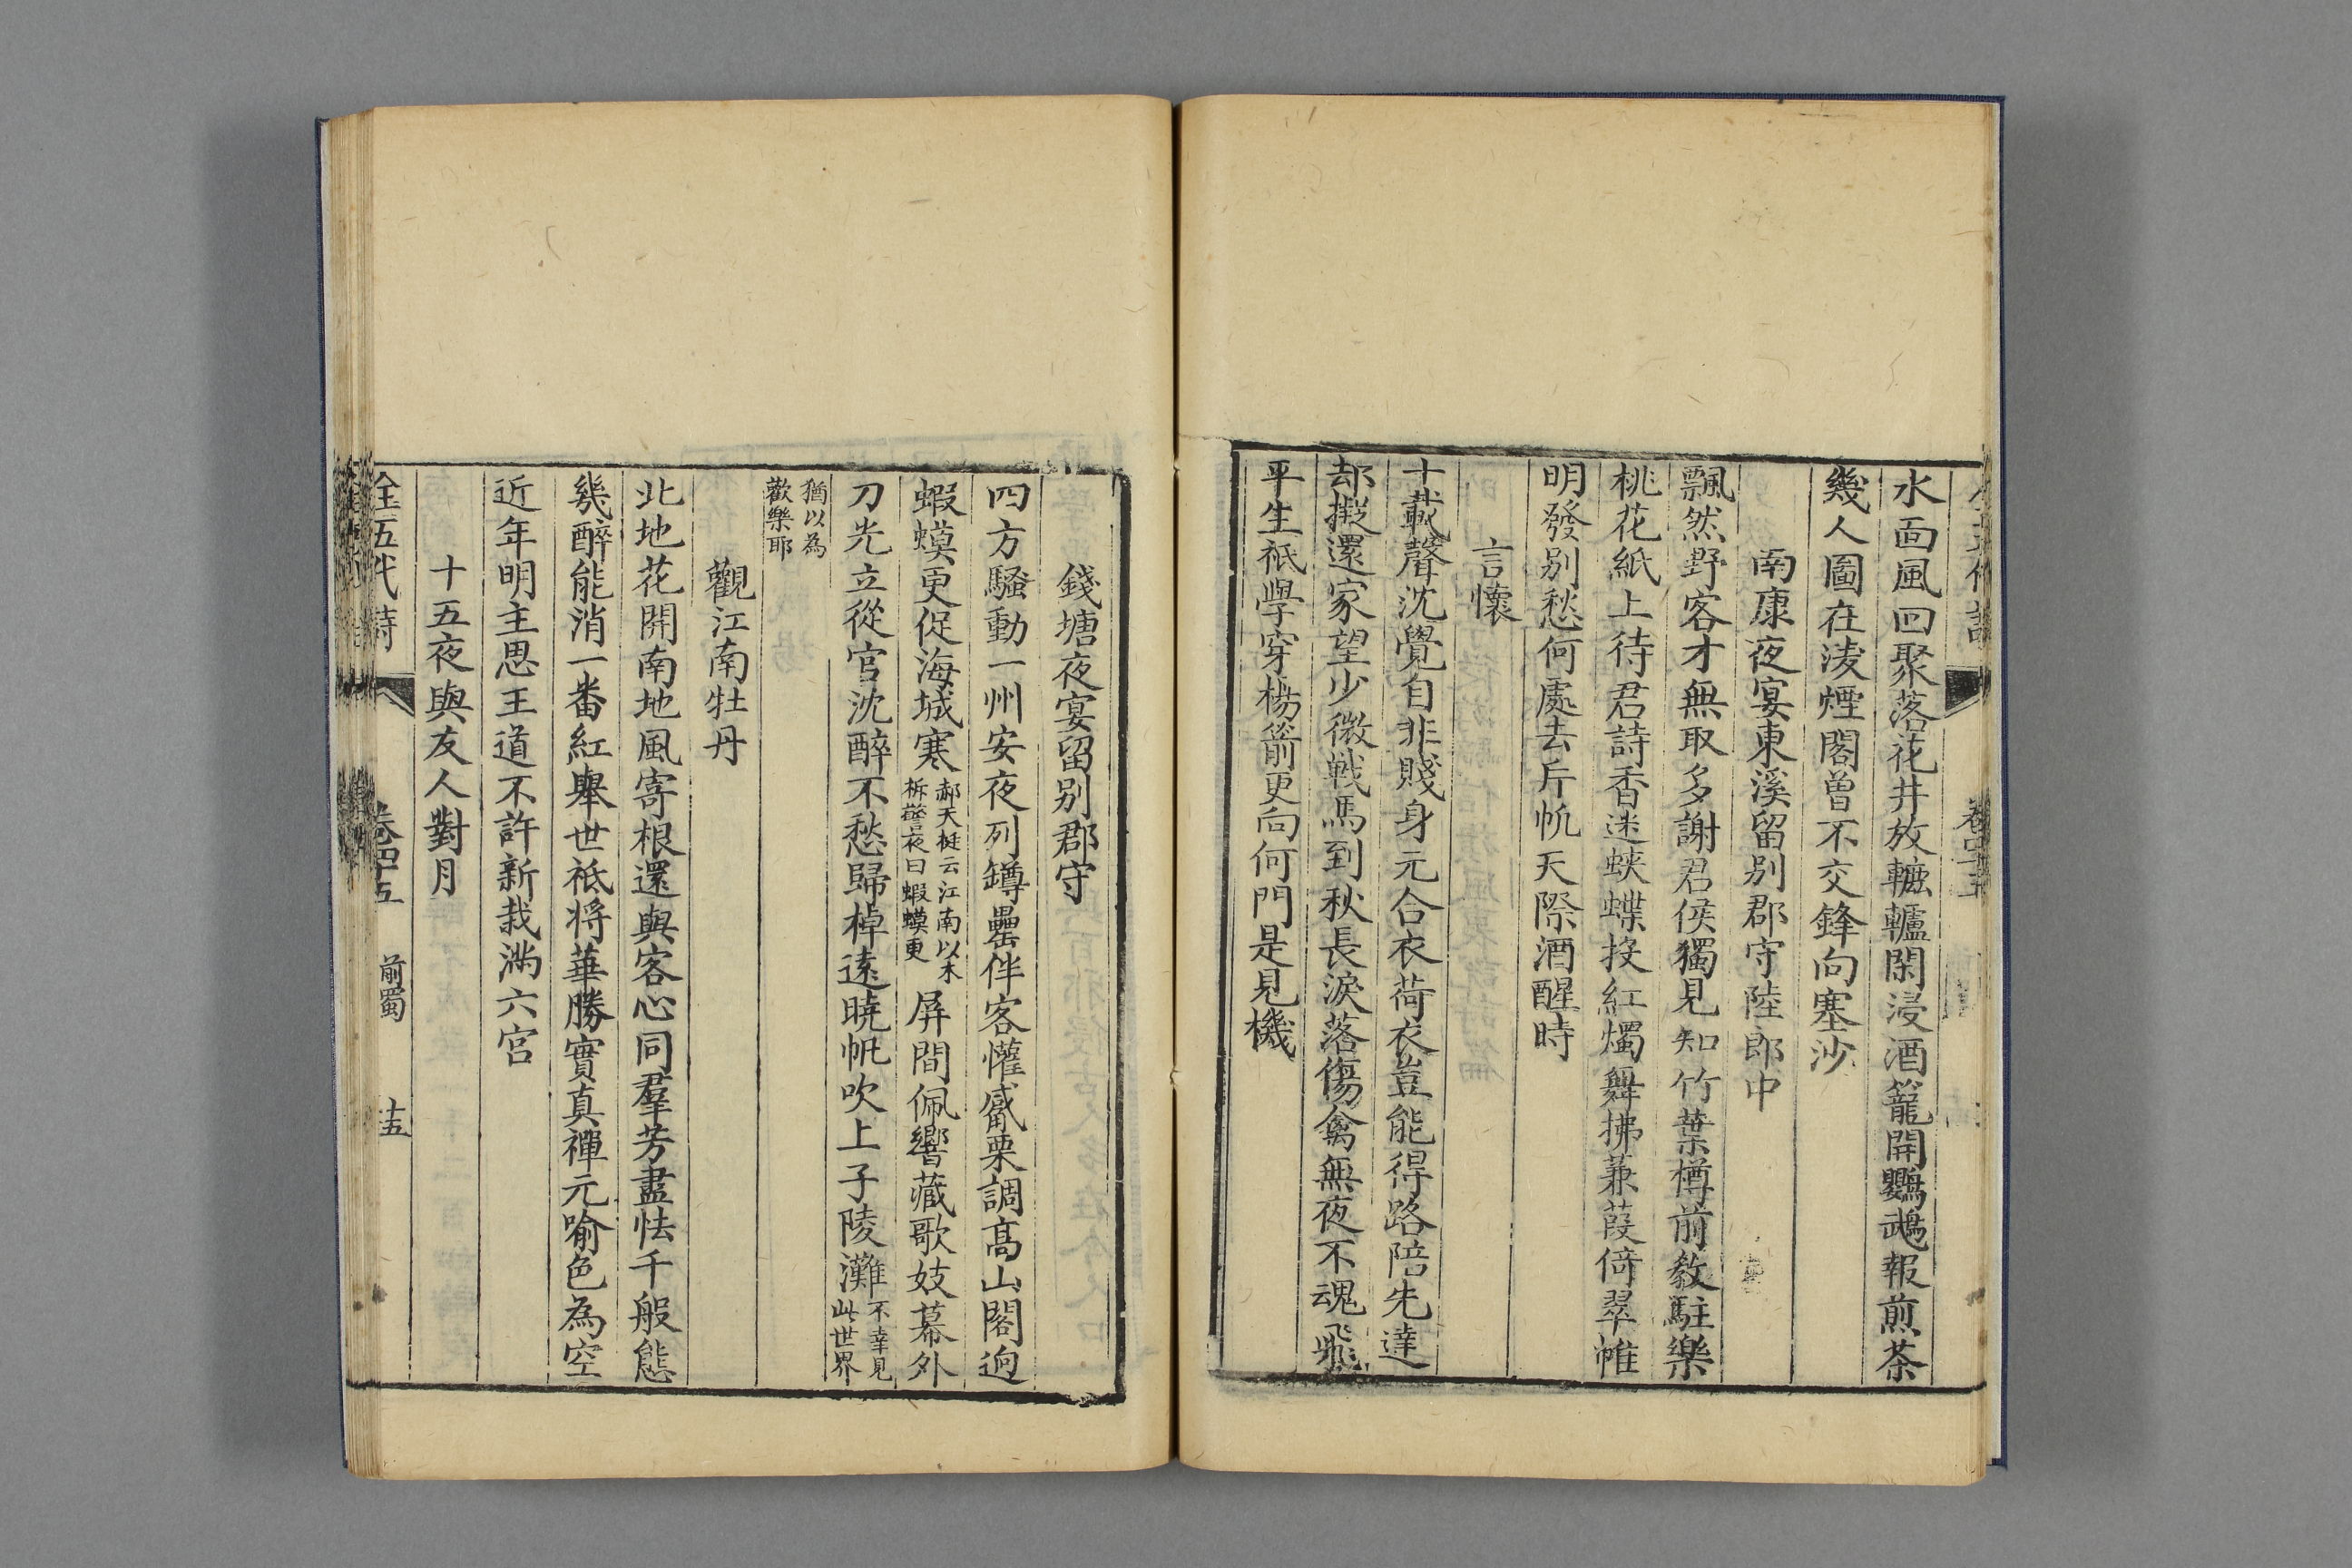 水面風回聚落花井放轆轤閑浸酒籠開鸚鵡報煎茶
幾人圖在淩煙閣曾不交鋒向塞沙
南康夜宴東溪留别郡守陸郎中
飄然野客才無取多謝君侯獨見知竹葉樽前教駐樂
桃花紙上待君詩香迷蛺蝶投紅燭舞拂蒹葭倚翠帷
明發别愁何處去片帆天際酒醒時
言懷
十載聲沈覺自非賤身元合衣荷衣豈能得路陪先達
却擬還家望少微戰馬到秋長淚落傷禽無夜不魂飛
平生祇學穿楊箭更向何門是見機
錢塘夜宴留别郡守
四方騷動一州安夜列罇罍伴客懽觱栗調高山閣迥
蝦蟆更促海城寒郝天挺云江南以木柝警夜曰蝦蟆更屏間佩響藏歌妓幕外
刀光立從官沈醉不愁歸棹遠曉帆吹上子陵灘不幸見此世界
猶以為歡樂耶
觀江南牡丹
北地花開南地風寄根還與客心同羣芳盡怯千般態
幾醉能消一番紅舉世祇將華勝實真禪元喻色為空
近年明主思王道不許新栽滿六宮
十五夜與友人對月
全五代詩 卷四十五 前蜀 十五